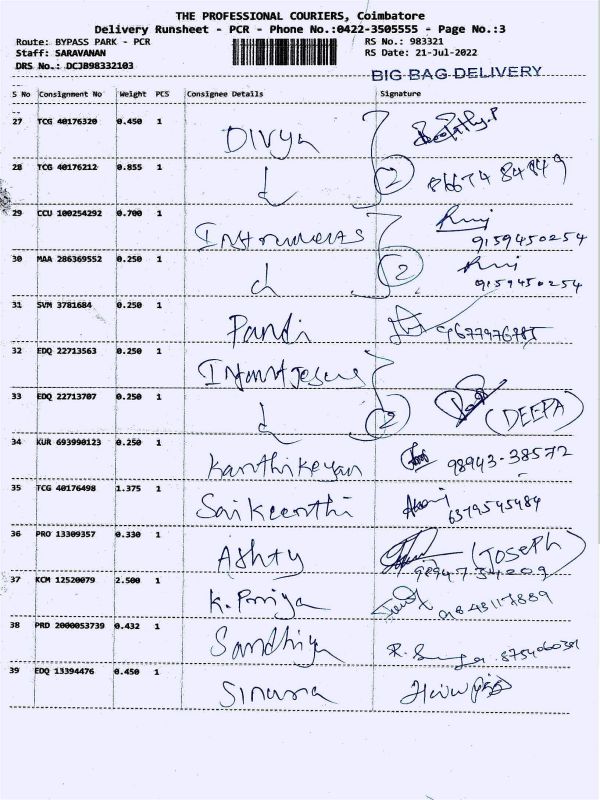 THE PROFESSIONAL COURIERS, Coimbatore
Delivery Runsheet - PCR - Phone No.:0422-3505555 - Page No.:3
Route: BYPASS PARK - PCR RS No.: 983321
Staff: SARAVANAN RS Date: 21-Jul-2022
DRS No.: DCJB98332103
BIG BAG DELIVERY
S No Consignment No Weight PCS Consignee Details Signature
27 TCG 40176320 0.450 1 Divya
28 TCG 40176212 0.855 1 2 86674 84849
29 CCU 100254292 0.700 1 Instruments 9159450254
30 MAA 286369552 0.250 1 2 9159450254
31 SVM 3781684 0.250 1 Pandi
32 EDQ 22713563 0.250 1 Infant Jesus
33 EDQ 22713707 0.250 1 2 (DEEPA)
34 KUR 693990123 0.250 1 Karthikeyan 98943-38572
35 TCG 40176498 1.375 1 Sai Keerthi 6379545484
36 PRO 13309357 0.330 1 Ashty (JOSEPH)
9894734209
37 KCM 12520079 2.500 1 K. Priya
38 PRD 2000053739 0.432 1 Sandhiya
39 EDQ 13394476 0.450 1